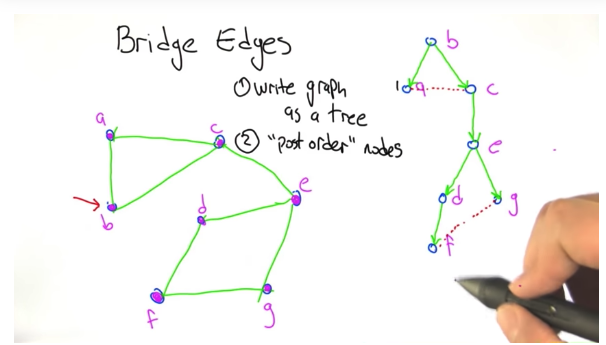 Bridge Edges
① write graph
as a tree
② "post order" nodes
a
c
b
d
e
f
g
b
1 a
c
e
d
g
f